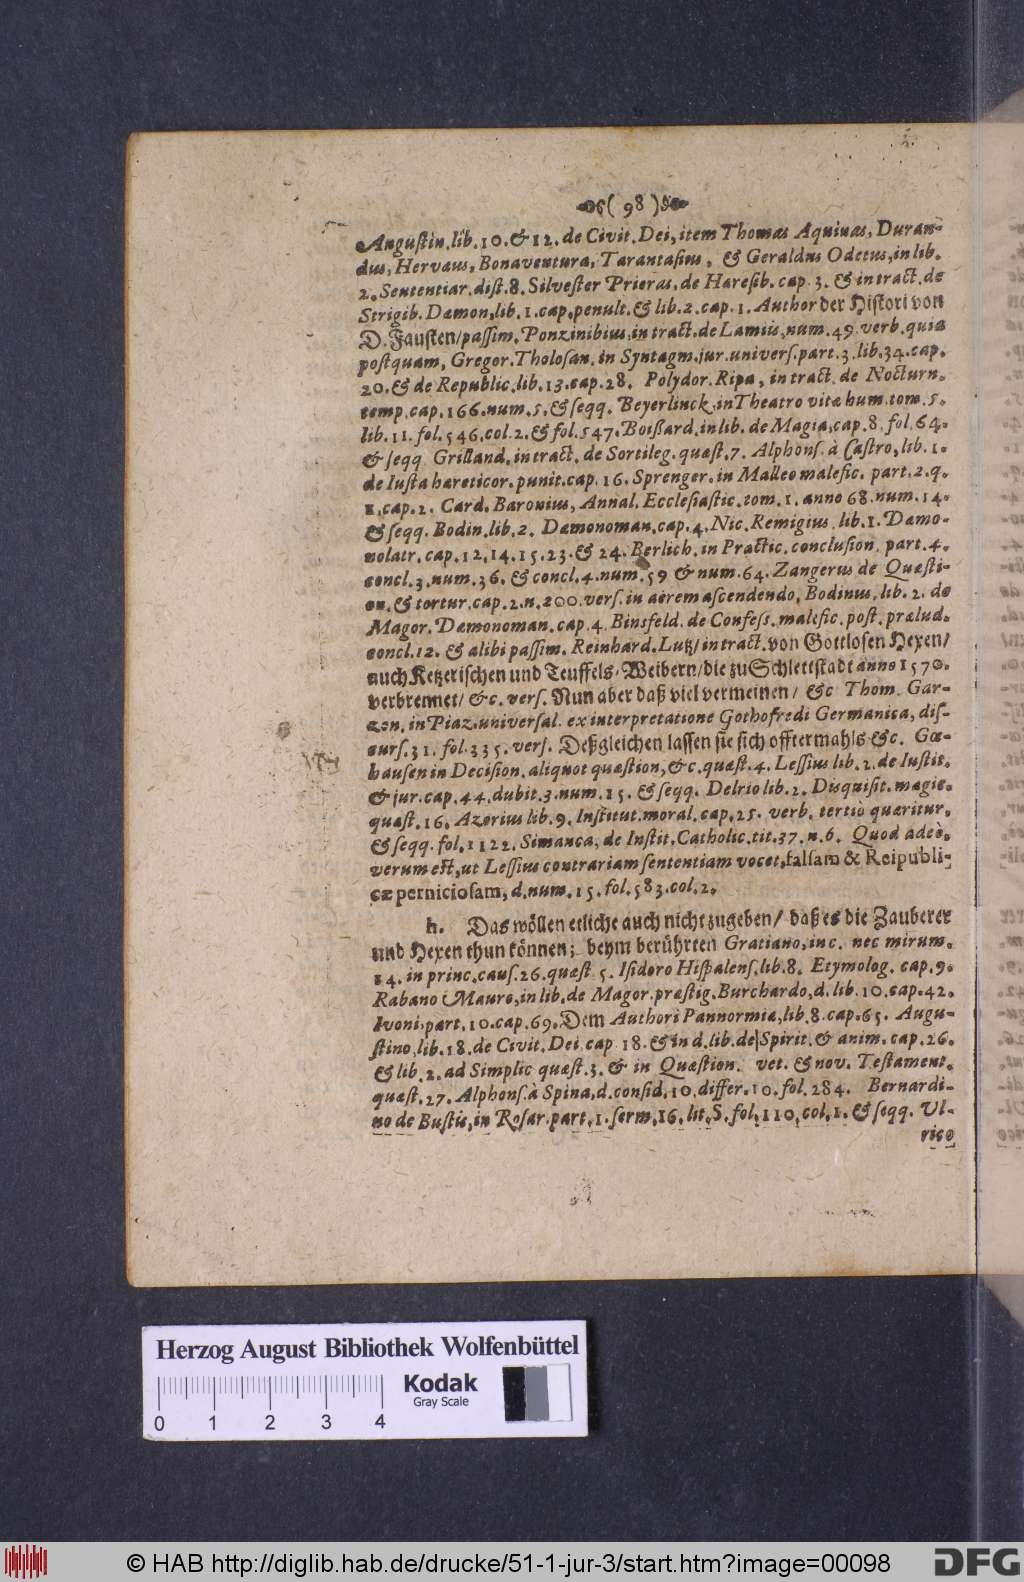 ( 98 )
Augustin. lib. 10. & 12. de Civit. Dei, item Thomas Aquinas, Duran-
dus, Hervæus, Bonaventura, Tarantasius, & Geraldus Odetus, in lib.
2. Sententiar. dist. 8. Silvester Prieras. de Hæresib. cap. 3. & in tract. de
Strigib. Dæmon. lib. 1. cap. penult. & lib. 2. cap. 1. Author der Histori von
D. Fausten/ passim. Ponzinibius, in tract. de Lamiis, num. 49. verb. quia
postquam, Gregor. Tholosan. in Syntagm. jur. univers. part. 3. lib. 34. cap.
20. & de Republic. lib. 13. cap. 28. Polydor. Ripa, in tract. de Nocturn.
temp. cap. 166. num. 5. & seqq. Beyerlinck. in Theatro vitæ hum. tom. 5.
lib. 11. fol. 546. col. 2. & fol. 547. Boißard. in lib. de Magia, cap. 8. fol. 64.
& seqq. Grilland. in tract. de Sortileg. quæst. 7. Alphons. à Castro, lib. 1.
de Iusta hæreticor. punit. cap. 16. Sprenger. in Malleo malefic. part. 2. q.
1. cap. 2. Card. Baronius, Annal. Ecclesiastic. tom. 1. anno 68. num. 14.
& seqq. Bodin. lib. 2. Dæmonoman. cap. 4. Nic. Remigius lib. 1. Dæmo-
nolatr. cap. 12. 14. 15. 23. & 24. Berlich. in Practic. conclusion. part. 4.
concl. 3. num. 36. & concl. 4. num. 59 & num. 64. Zangerus de Quæsti-
on. & tortur. cap. 2. n. 200. vers. in aërem ascendendo, Bodinus, lib. 2. de
Magor. Dæmonoman. cap. 4. Binsfeld. de Confess. malefic. post. prælud.
concl. 12. & alibi passim. Reinhard. Lutz/ in tract. von Gottlosen Hexen/
auch Ketzerischen und Teuffels-Weibern/ die zu Schlettstadt anno 1570.
verbrennet/ &c. vers. Nun aber daß viel vermeinen/ &c Thom. Gar-
zon. in Piaz. universal. ex interpretatione Gothofredi Germanica, dis-
curs. 31. fol. 335. vers. Deßgleichen lassen sie sich offtermahls &c. Gœ-
hausen in Decision. aliquot quæstion, &c. quæst. 4. Lessius lib. 2. de Iustit.
& jur. cap. 44. dubit. 3. num. 15. & seqq. Delrio lib. 2. Disquisit. magic.
quæst. 16. Azorius lib. 9. Institut. moral. cap. 25. verb. tertiò quæritur.
& seqq. fol. 1122. Simanca, de Instit. Catholic. tit. 37. n. 6. Quod adeò.
verum est, ut Lessius contrariam sententiam vocet, falsam & Reipubli-
cæ perniciosam, d. num. 15. fol. 583. col. 2.
h. Das wöllen etliche auch nicht zugeben/ daß es die Zauberer
und Hexen thun können; beym berührten Gratiano, in c. nec mirum.
14. in princ. caus. 26. quæst 5. Isidoro Hispalens. lib. 8. Etymolog. cap. 9.
Rabano Mauro, in lib. de Magor. præstig. Burchardo, d. lib. 10. cap. 42.
Ivoni, part. 10. cap. 69. Dem Authori Pannormiæ, lib. 8. cap. 65. Augu-
stino lib. 18. de Civit. Dei cap 18. & in d. lib. de Spirit. & anim. cap. 26.
& lib. 2. ad Simplic quæst. 3. & in Quæstion. vet. & nov. Testament.
quæst. 27. Alphons. à Spina, d. consid. 10. differ. 10. fol. 284. Bernardi-
no de Bustis, in Rosar. part. 1. serm. 16. lit. S. fol. 110. col. 1. & seqq. Ul-
rico
Herzog August Bibliothek Wolfenbüttel
Kodak
Gray Scale
0 1 2 3 4
© HAB http://diglib.hab.de/drucke/51-1-jur-3/start.htm?image=00098
DFG